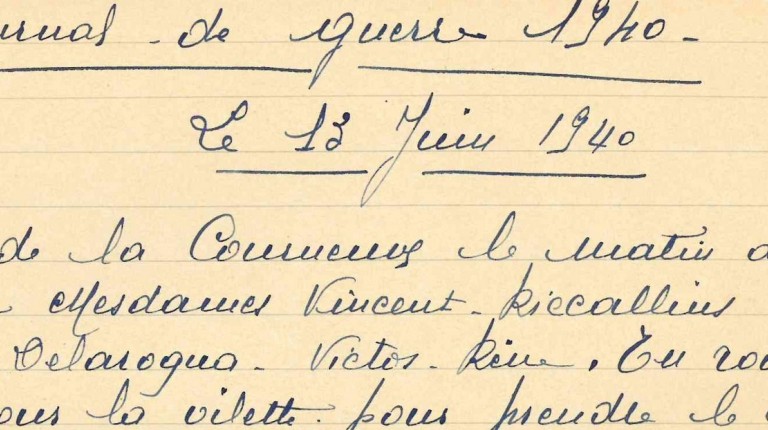 urnal - de guerre 1940 -
Le 13 Juin 1940
de la Courneuve le matin
Mesdames Vincent - Riccallins
Delarogua - Victor - Réné. En rou
our la vilette pour prendre le